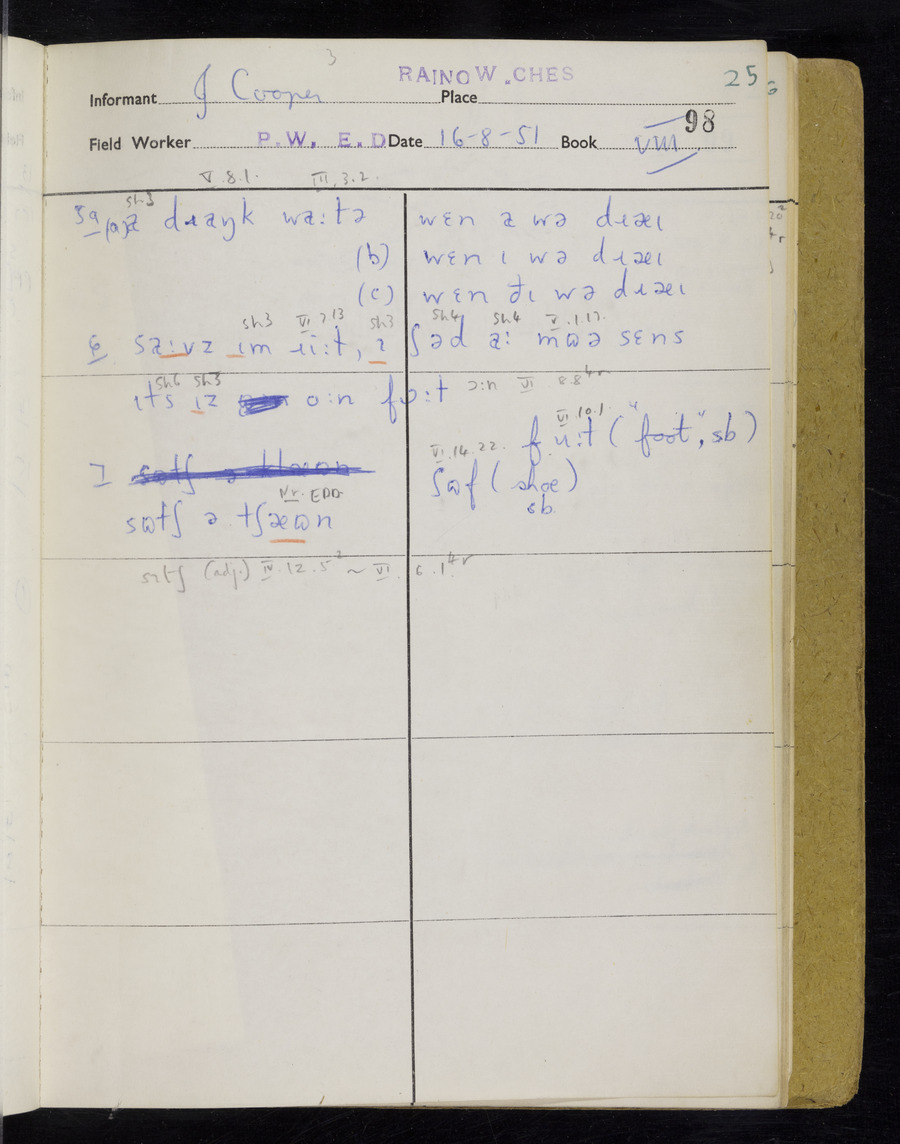 3
RAINOW . CHES
25
Informant J Cooper Place
98
Field Worker P. W. E. D Date 16-8-51 Book VIII
V.8.1. III.3.2.
sh3
5a (a) a dɹaŋk wa:tə wɛn a wə dɹæɪ
(b) wɛn ɪ wə dɹæɪ
(c) wɛn ðɪ wə dɹæɪ
sh3 VI.7.13 sh3 sh4 sh4 V.1.17.
6 sa:vz ɪm ɹi:t, ɪ ʃəd a: mɷə sɛns
sh6 sh3
ɪts ɪz o:n fɔ:t ɔ:n VI 8.8
VI.10.1.
fu:t ("foot", sb)
VI.14.22.
7 ʃɷf (shoe)
sb.
Nr. EDD.
sɷtʃ ə tʃæɷn
(adj.) IV.12.5² ~ VI.6.1⁴ʳ